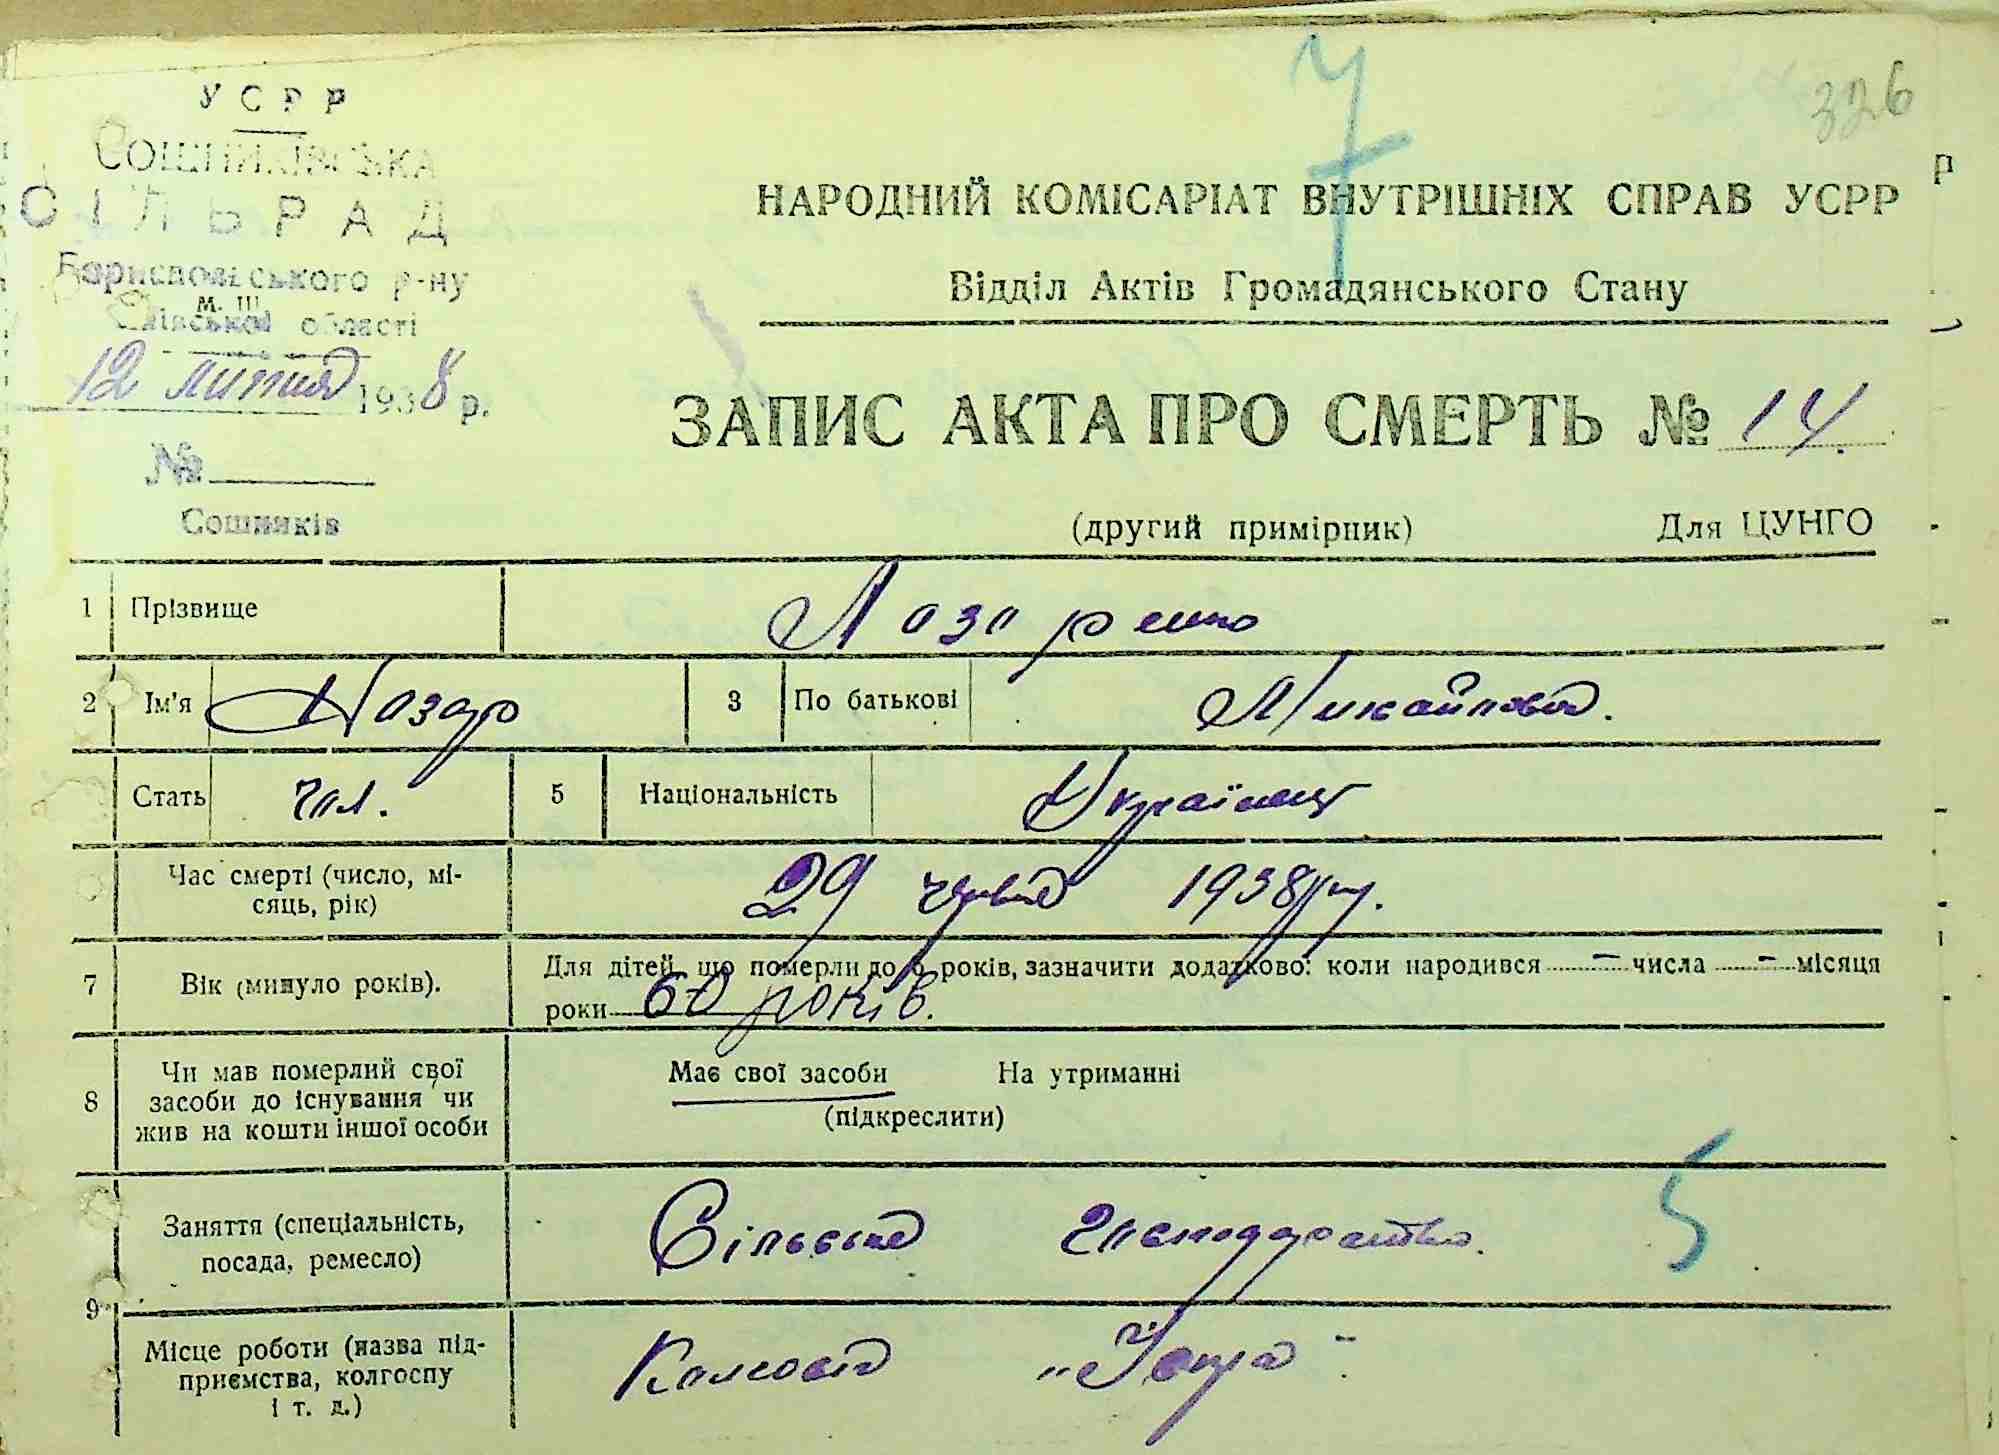 УСРР
СОШНИКІВСЬКА
СІЛЬРАД
Бориспольського р-ну
М. Ш
Київської області
12 липня 1938 р.
№
Сошників
7
326
НАРОДНИЙ КОМІСАРІАТ ВНУТРІШНІХ СПРАВ УСРР
Відділ Актів Громадянського Стану
ЗАПИС АКТА ПРО СМЕРТЬ № 14.
(другий примірник) Для ЦУНГО
1 Прізвище Лазоренко
2 Ім'я Назар 3 По батькові Михайлович.
Стать чол. 5 Національність Українець
Час смерті (число, мі-
сяць, рік) 29 червня 1938 р.
7 Вік (минуло років). Для дітей, що померли до 6 років, зазначити додатково: коли народився – числа – місяця
роки 60 років.
8 Чи мав померлий свої
засоби до існування чи
жив на кошти іншої особи
Має свої засоби На утриманні
(підкреслити)
9 Заняття (спеціальність,
посада, ремесло) Сільське господарство. 5
Місце роботи (назва під-
приємства, колгоспу
і т. д.) Колгосп "Іскра"